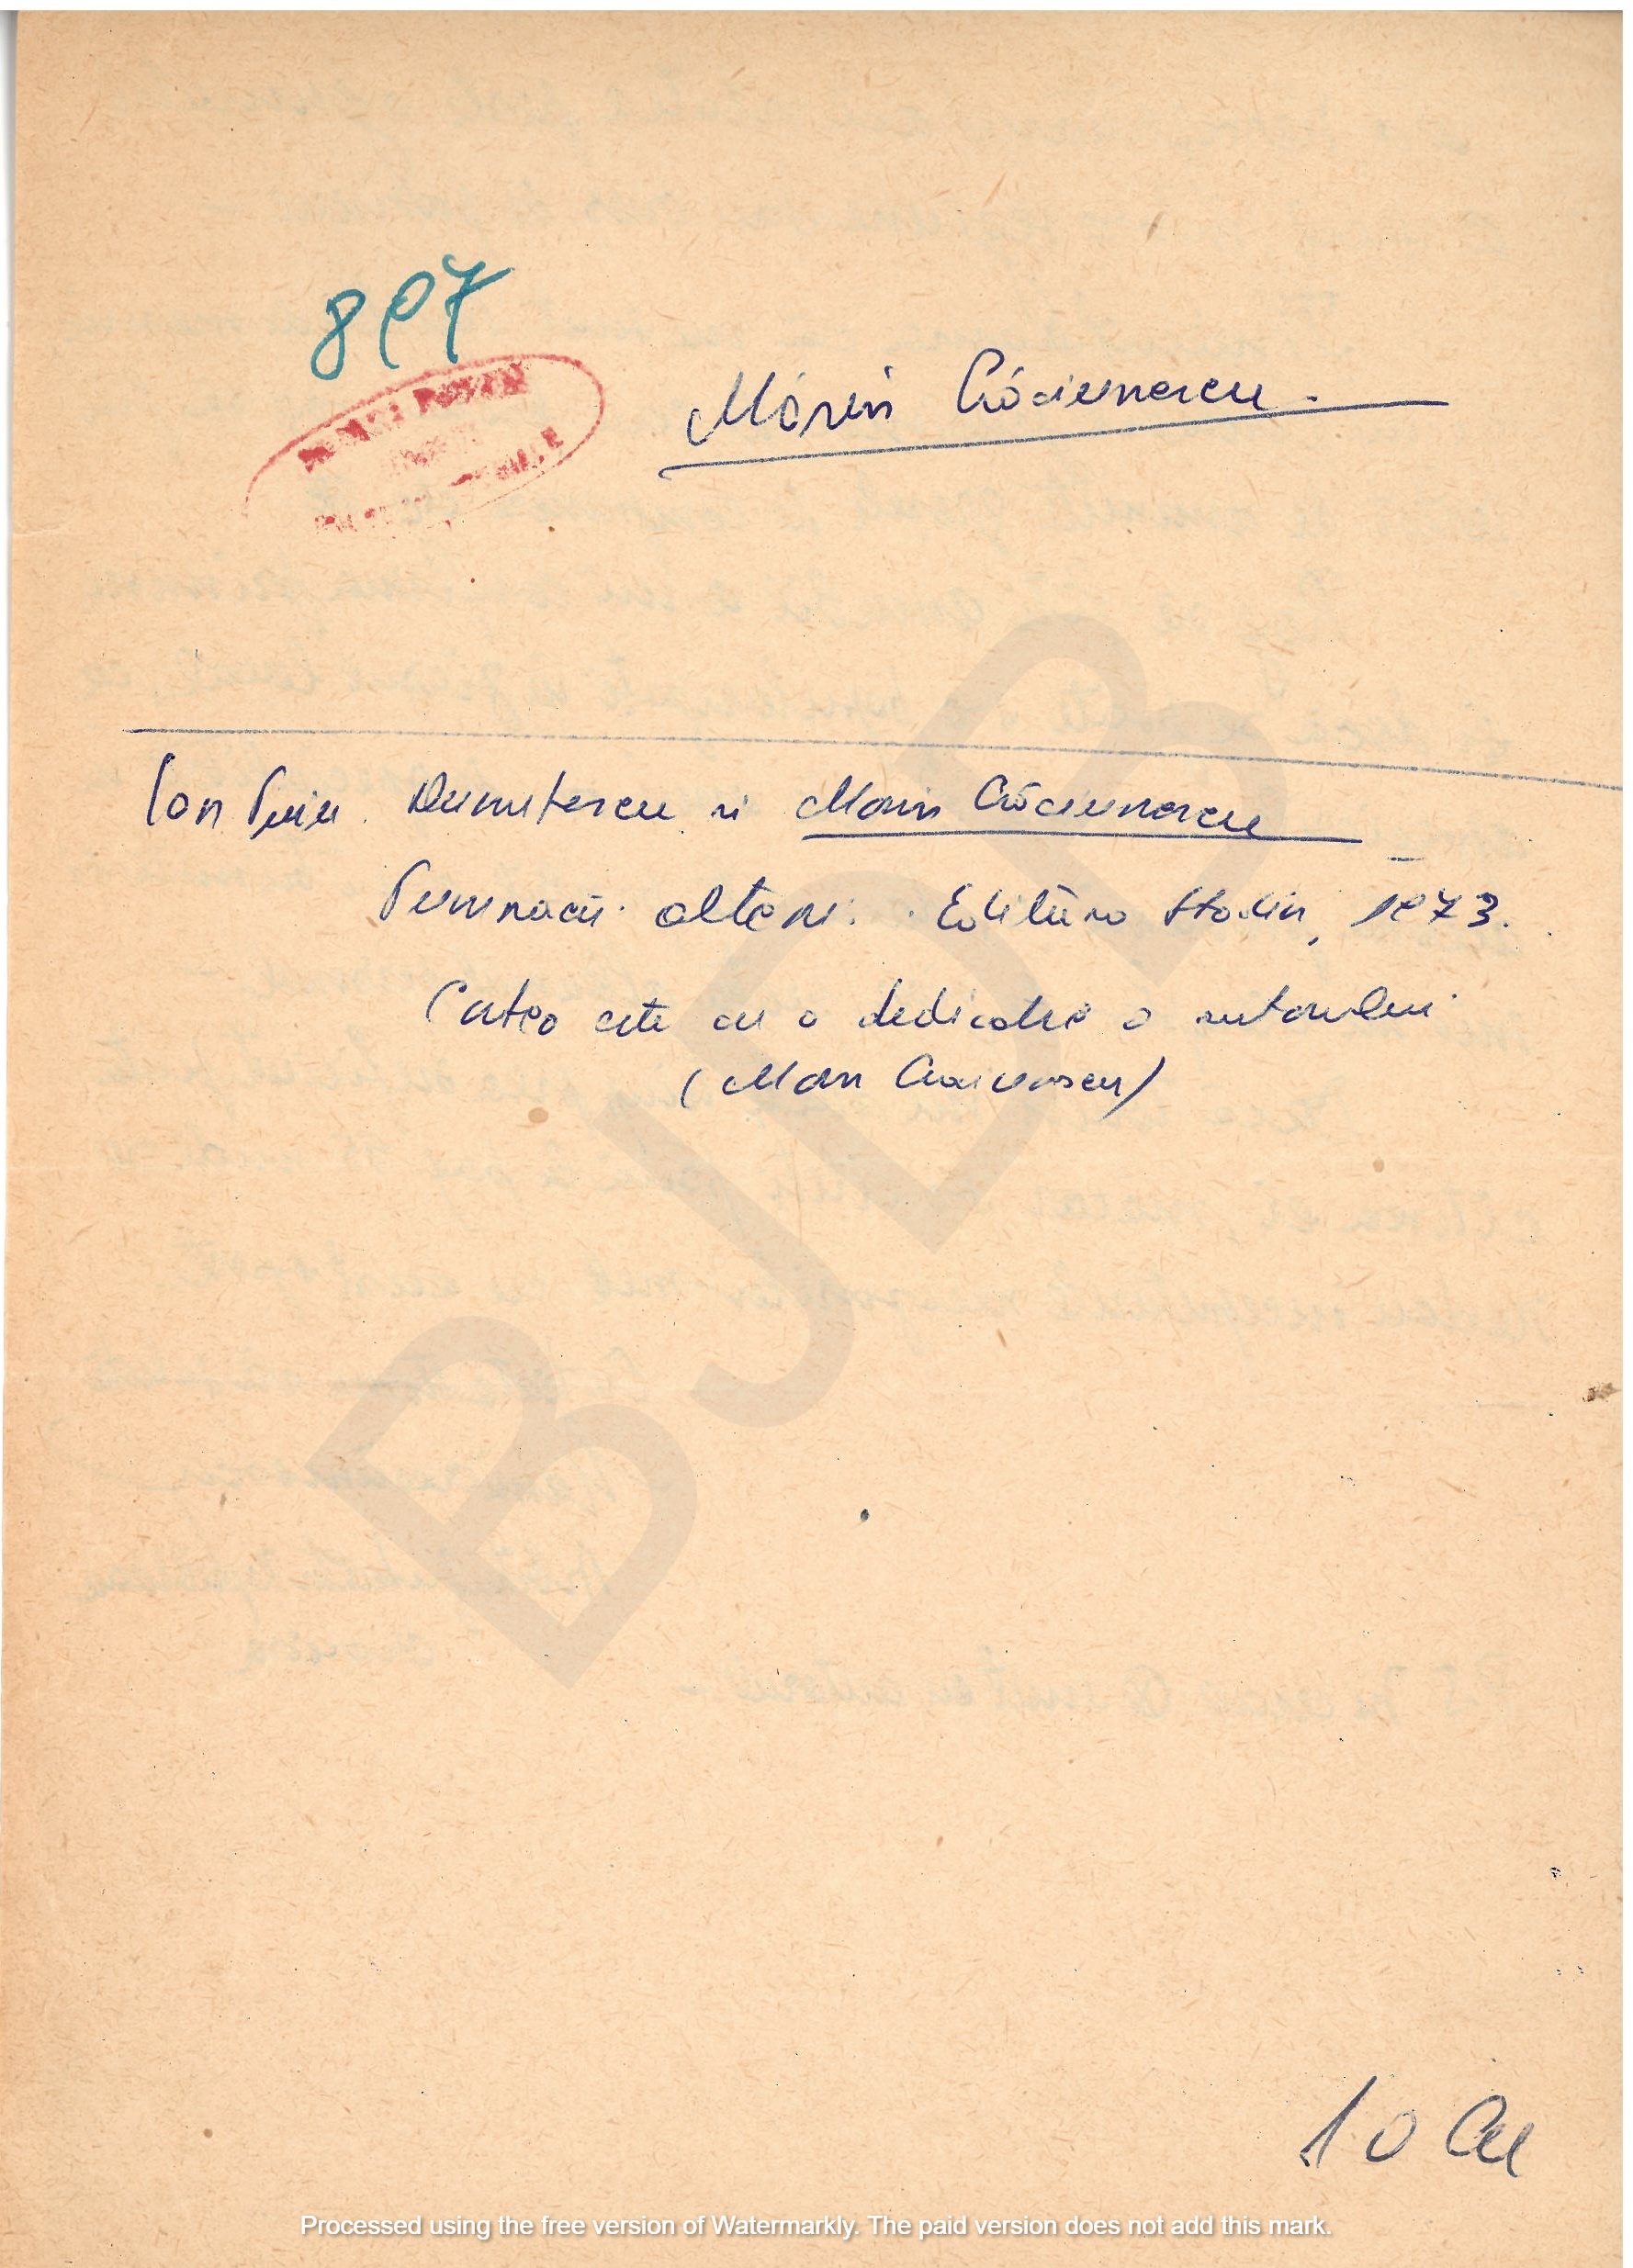 897
Marin Crăciunescu.
Ion Puiu Dumitrescu și Marin Crăciunescu
Pumnacii olteni. Editura Stadion, 1973.
Cartea este cu o dedicație a autorului
(Marin Crăciunescu)
10 Cu
BJDB
Processed using the free version of Watermarkly. The paid version does not add this mark.